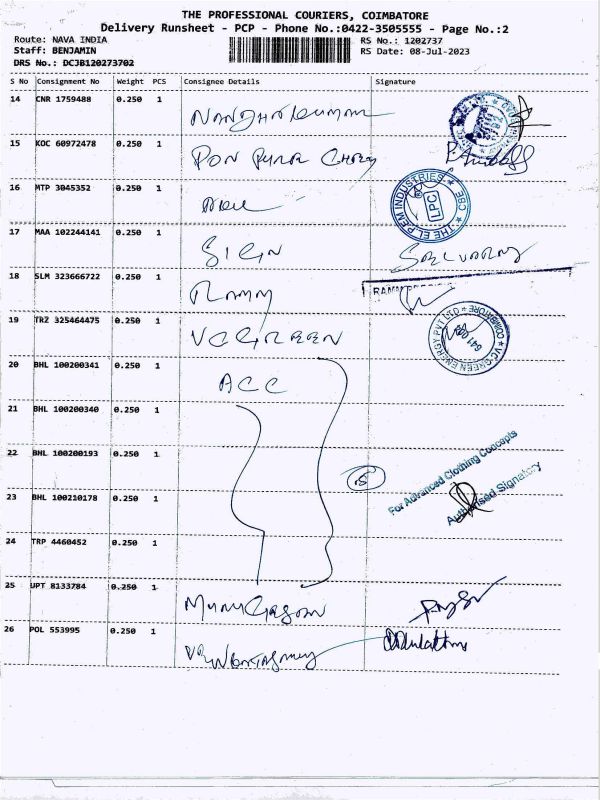 THE PROFESSIONAL COURIERS, COIMBATORE
Delivery Runsheet - PCP - Phone No.:0422-3505555 - Page No.:2
Route: NAVA INDIA RS No.: 1202737
Staff: BENJAMIN RS Date: 08-Jul-2023
DRS No.: DCJB120273702
S No Consignment No Weight PCS Consignee Details Signature
14 CNR 1759488 0.250 1
15 KOC 60972478 0.250 1 PON PURE CHEM
16 MTP 3045352 0.250 1
THE EL.P.EM INDUSTRIES CBE LPC
17 MAA 102244141 0.250 1 SELVARAJ
18 SLM 323666722 0.250 1
19 TRZ 325464475 0.250 1 VCGREEN
VC GREEN ENERGY PVT LTD COIMBATORE
20 BHL 100200341 0.250 1 ACC
21 BHL 100200340 0.250 1
22 BHL 100200193 0.250 1 5
For Advanced Clothing Concepts
23 BHL 100210178 0.250 1
Authorised Signatory
24 TRP 4460452 0.250 1
25 UPT 8133784 0.250 1 Murugesan
26 POL 553995 0.250 1